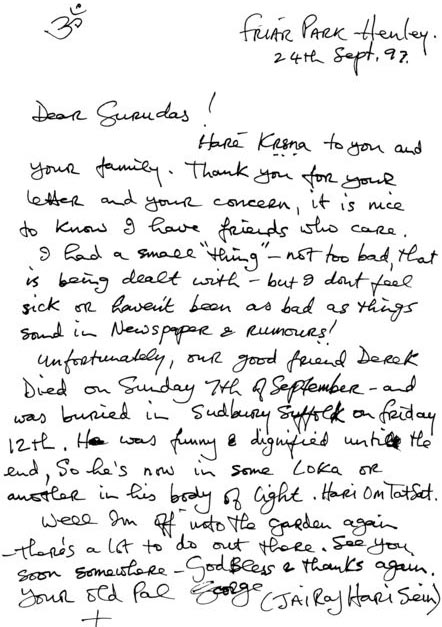 ॐ
FRIAR PARK Henley.
24th Sept. 97.
Dear Gurudas!
Harē Kṛṣṇa to you and
your family. Thank you for your
letter and your concern, it is nice
to know I have friends who care.
I had a small "thing" – not too bad, that
is being dealt with – but I dont feel
sick or haven't been as bad as things
sound in Newspaper & Rumours!
Unfortunately, our good friend Derek
Died on Sunday 7th of September – and
was buried in Sudbury Suffolk on friday
12th. He was funny & dignified until the
end, So he's now in some Loka or
another in his body of light. Hari Om Tat Sat.
Well Im off into the garden again
– there's a lot to do out there. See you
soon somewhere – God Bless & thanks again.
Your old Pal George (JAi Raj Hari Sein)
+